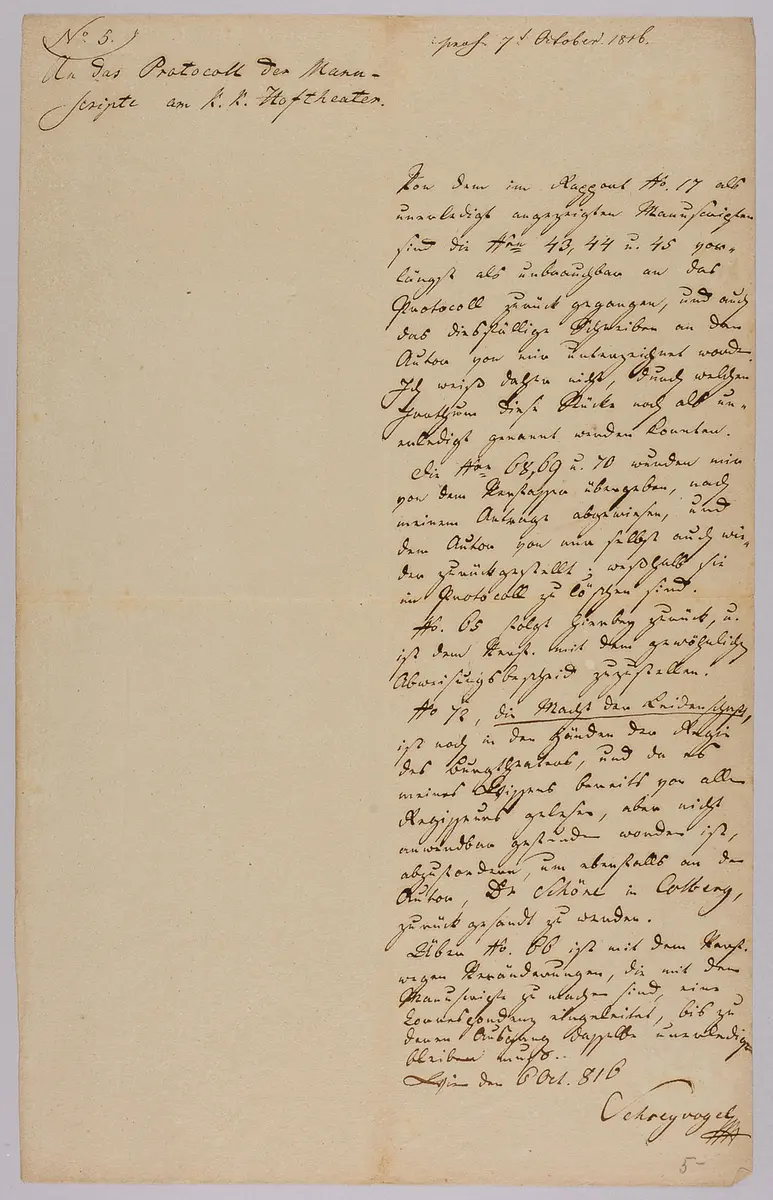 No 5.
praes. 7t October. 1816.
An das Protocoll der Manu-
scripte am k. k. Hoftheater.
Von dem im Rapport No. 17 als
unerledigt angezeigten Manuscripten
sind die Nrn 43, 44 u. 45 vor-
längst als unbrauchbar an das
Protocoll zurück gegangen, und auch
das diesfällige Schreiben an den
Autor von mir unterzeichnet worden.
Ich weiß daher nicht, durch welchen
Irrthum diese Stücke noch als un-
erledigt genannt werden konnten.
Die Nrn 68, 69 u. 70 wurden mir
von dem Verfasser übergeben, nach
meinem Antrage abgewiesen, und
dem Autor von mir selbst auch wie-
der zurückgestellt; weßhalb sie
im Protocoll zu löschen sind.
No. 65 folgt hierbey zurück, u.
ist dem Verf. mit dem gewöhnlichen
Abweisungsbescheid zuzustellen.
No 72, die Macht der Leidenschaft,
ist noch in den Händen der Regie
des Burgtheaters, und da es
meines Wissens bereits von allen
Regisseurs gelesen, aber nicht
anwendbar gefunden worden ist,
abzufordern, um ebenfalls an den
Autor, Dr Schöne in Colberg,
zurück gesandt zu werden.
Über No. 66 ist mit dem Verf.
wegen Veränderungen, die mit dem
Manuscripte zu machen sind, eine
Correspondenz eingeleitet, bis zu
deren Ausgang dasselbe unerledigt
bleiben muß..
Wien den 6 Oct. 816
Schreyvogel
5-